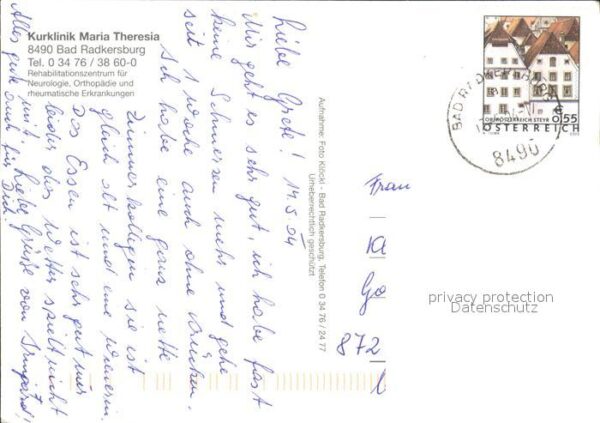 Kurklinik Maria Theresia
8490 Bad Radkersburg
Tel. 0 34 76 / 38 60-0
Rehabilitationszentrum für
Neurologie, Orthopädie und
rheumatische Erkrankungen
Liebe Gretl! 14.5.04
Mir geht es sehr gut, ich habe fast
keine Schmerzen mehr und gehe
seit 1 Woche auch ohne Krücken.
Ich habe eine ganz nette
Zimmerkollegin sie ist
gleich alt und eine Wienerin.
Das Essen ist sehr gut nur
leider das Wetter spielt nicht
mit. Liebe Grüße von Irmgard!
Alles gute auch für Dich!
Aufnahme: Foto Kilicki - Bad Radkersburg, Telefon 0 34 76 / 24 77
Urheberrechtlich geschützt
BAD RADKERSBURG
8490
€ 0,55
OBERÖSTERREICH STEYR
ÖSTERREICH
Frau
Ga
872
privacy protection
Datenschutz